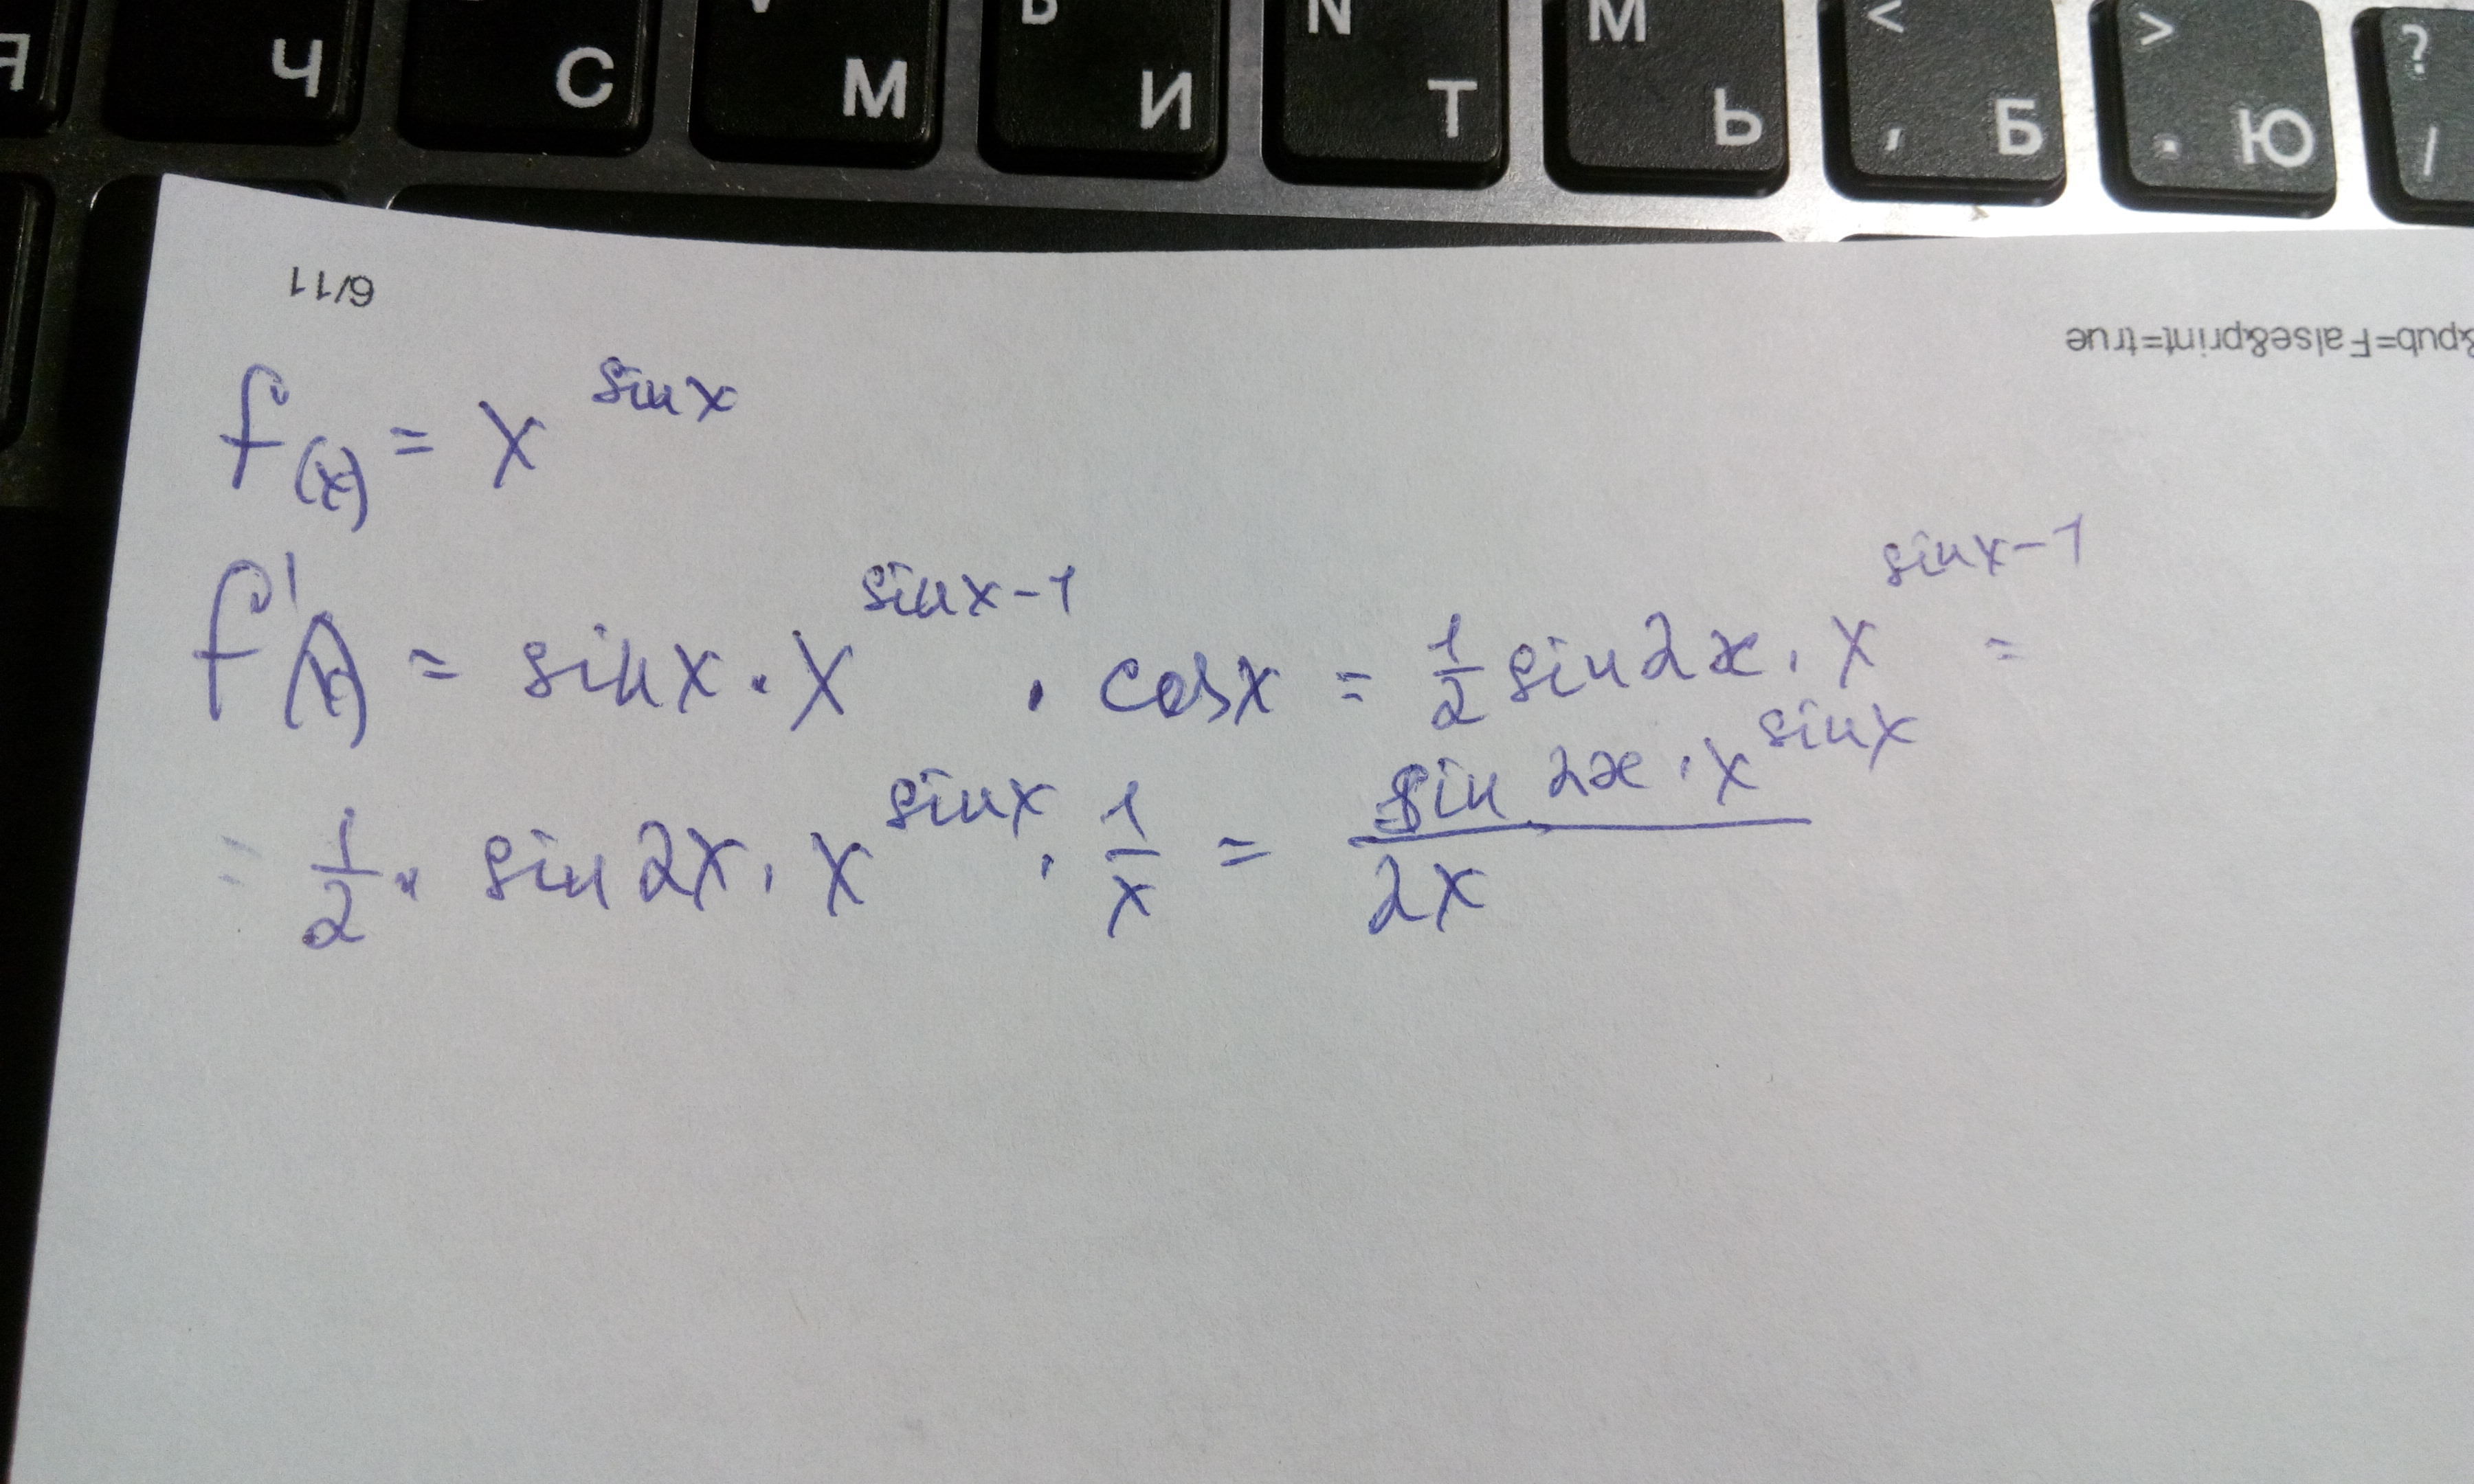 Я Ч С М И Т Ь < , Б > . Ю ? /
V N M
6/11
&pub=False&print=true
f(x) = x^sinx
f'(x) = sinx · x^sinx-1 · cosx = 1/2 sin2x · x^sinx-1 =
= 1/2 · sin2x · x^sinx · 1/x = sin 2x · x^sinx / 2x